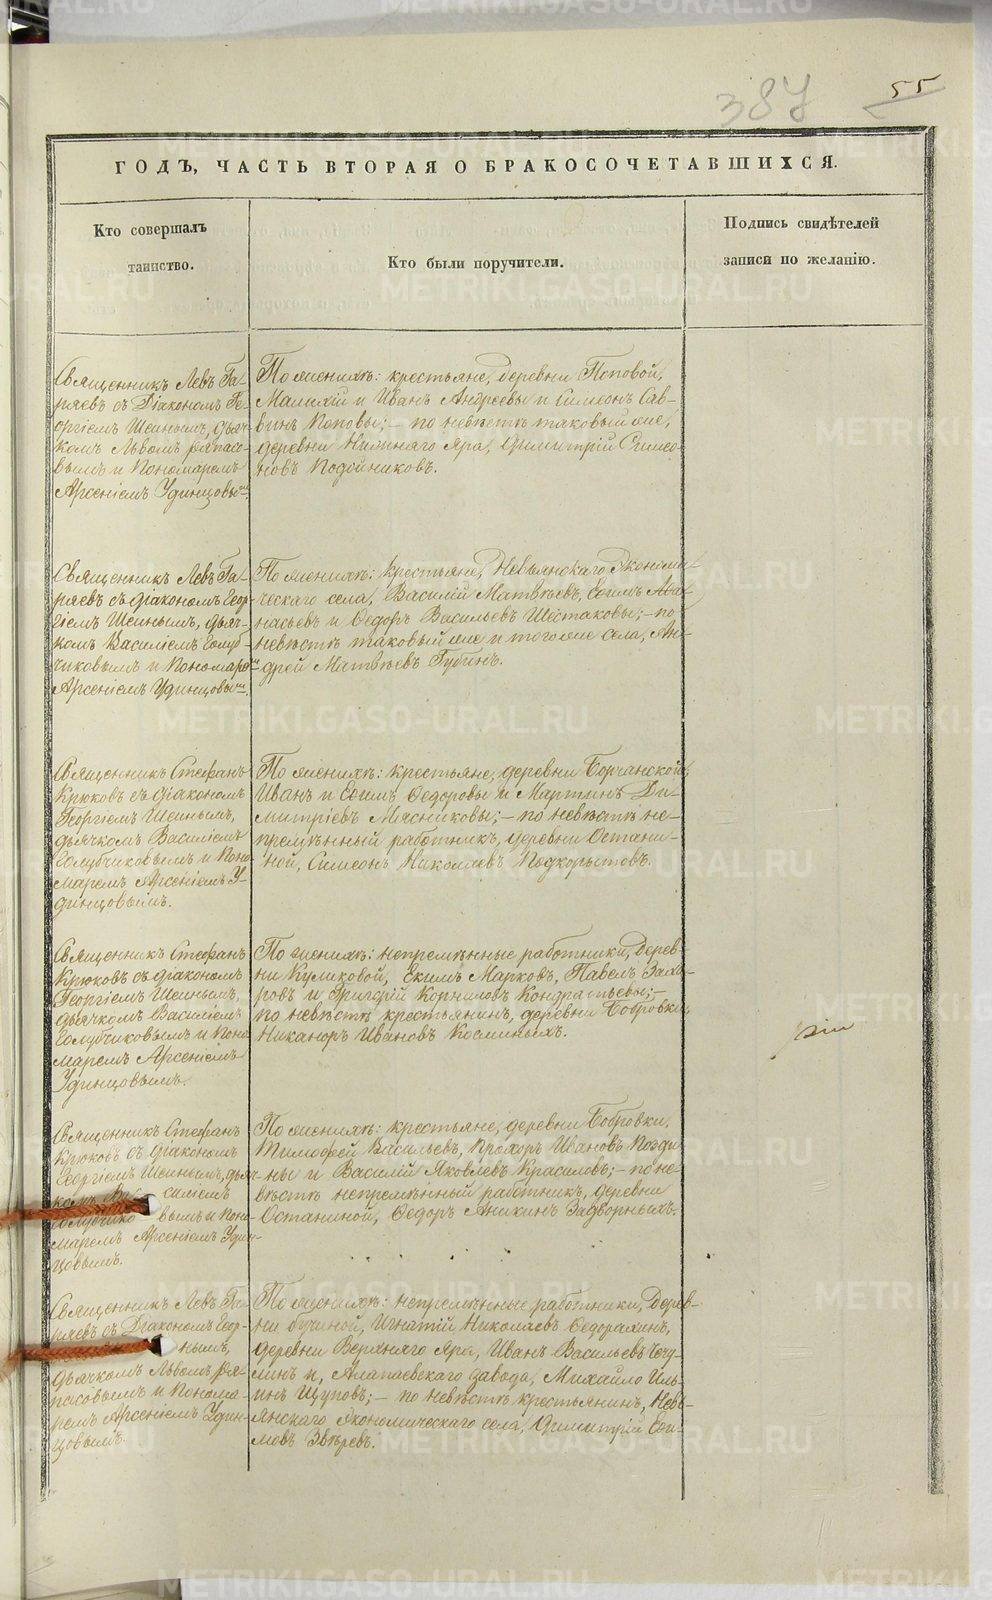 387 55
ГОДЪ, ЧАСТЬ ВТОРАЯ О БРАКОСОЧЕТАВШИХСЯ.
Кто совершалъ
таинство.
Кто были поручители.
Подпись свидѣтелей
записи по желанію.
Священникъ Левъ Га-
ряевъ съ Діакономъ Ге-
оргіемъ Шеинымъ, дьяч-
комъ Львомъ
вымъ и Пономаремъ
Арсеніемъ Удинцовымъ.
По женихѣ: крестьяне, деревни Поповой,
и Иванъ Андреевы и Симеонъ Сав-
винъ Поповы; – по невѣстѣ таковый же,
деревни Нижняго Яра, Димитрій Симео-
новъ Подойниковъ.
Священникъ Левъ Га-
ряевъ съ діакономъ Геор-
гіемъ Шеинымъ, дьяч-
комъ Василіемъ Голуб-
чиковымъ и Пономаремъ
Арсеніемъ Удинцовымъ.
По женихѣ: крестьяне, Невьянскаго Экономи-
ческаго села, Василій Матвѣевъ, Ефимъ Афа-
насьевъ и Федоръ Васильевъ Шестаковы; – по
невѣстѣ таковый же и того же села, Ан-
дрей Матвѣевъ Губинъ.
Священникъ Стефанъ
Крюковъ съ діакономъ
Георгіемъ Шеинымъ,
дьячкомъ Василіемъ
Голубчиковымъ и Поно-
маремъ Арсеніемъ У-
динцовымъ.
По женихѣ: крестьяне, деревни Борчанской,
Иванъ и Ефимъ Федоровы и Мартинъ Ди-
митріевъ Мясниковы; – по невѣстѣ не-
премѣнный работникъ, деревни Остани-
ной, Симеонъ Николаевъ Подкорытовъ.
Священникъ Стефанъ
Крюковъ съ діакономъ
Георгіемъ Шеинымъ,
дьячкомъ Василіемъ
Голубчиковымъ и Поно-
маремъ Арсеніемъ
Удинцовымъ.
По женихѣ: непремѣнные работники, дерев-
ни Куликовой, Екимъ Марковъ, Павелъ Заха-
ровъ и Григорій Корниловъ Кондратьевы; –
по невѣстѣ крестьянинъ, деревни Бобровки,
Никаноръ Ивановъ Косминыхъ.
Священникъ Стефанъ
Крюковъ съ діакономъ
Георгіемъ Шеинымъ, дьяч-
комъ Василіемъ
Голубчиковымъ и Поно-
маремъ Арсеніемъ Удин-
цовымъ.
По женихѣ: крестьяне, деревни Бобровки,
Тимофей Васильевъ, Прохоръ Ивановъ Позди-
ны и Василій Яковлевъ Красиловъ; – по не-
вѣстѣ непремѣнный работникъ, деревни
Останиной, Федоръ Аникинъ Задворныхъ.
Священникъ Левъ Га-
ряевъ съ Діакономъ Геор-
нымъ,
дьячкомъ Львомъ
и Понома-
ремъ Арсеніемъ Удин-
цовымъ.
По женихѣ: непремѣнные работники, дерев-
ни Бучиной, Игнатій Николаевъ Федорахинъ,
деревни Верхняго Яра, Иванъ Васильевъ Чечу-
линъ и, Алапаевскаго завода, Михайло Иль-
инъ Щуповъ; – по невѣстѣ крестьянинъ, Невь-
янскаго экономическаго села, Димитрій Ефи-
мовъ Звѣревъ.
METRIKI.GASO-URAL.RU